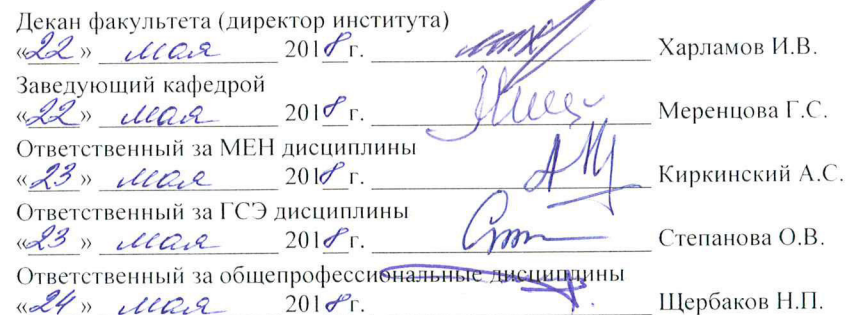 Декан факультета (директор института)
«22» мая 2018 г. Харламов И.В.
Заведующий кафедрой
«22» мая 2018 г. Меренцова Г.С.
Ответственный за МЕН дисциплины
«23» мая 2018 г. Киркинский А.С.
Ответственный за ГСЭ дисциплины
«23» мая 2018 г. Степанова О.В.
Ответственный за общепрофессиональные дисциплины
«24» мая 2018 г. Щербаков Н.П.